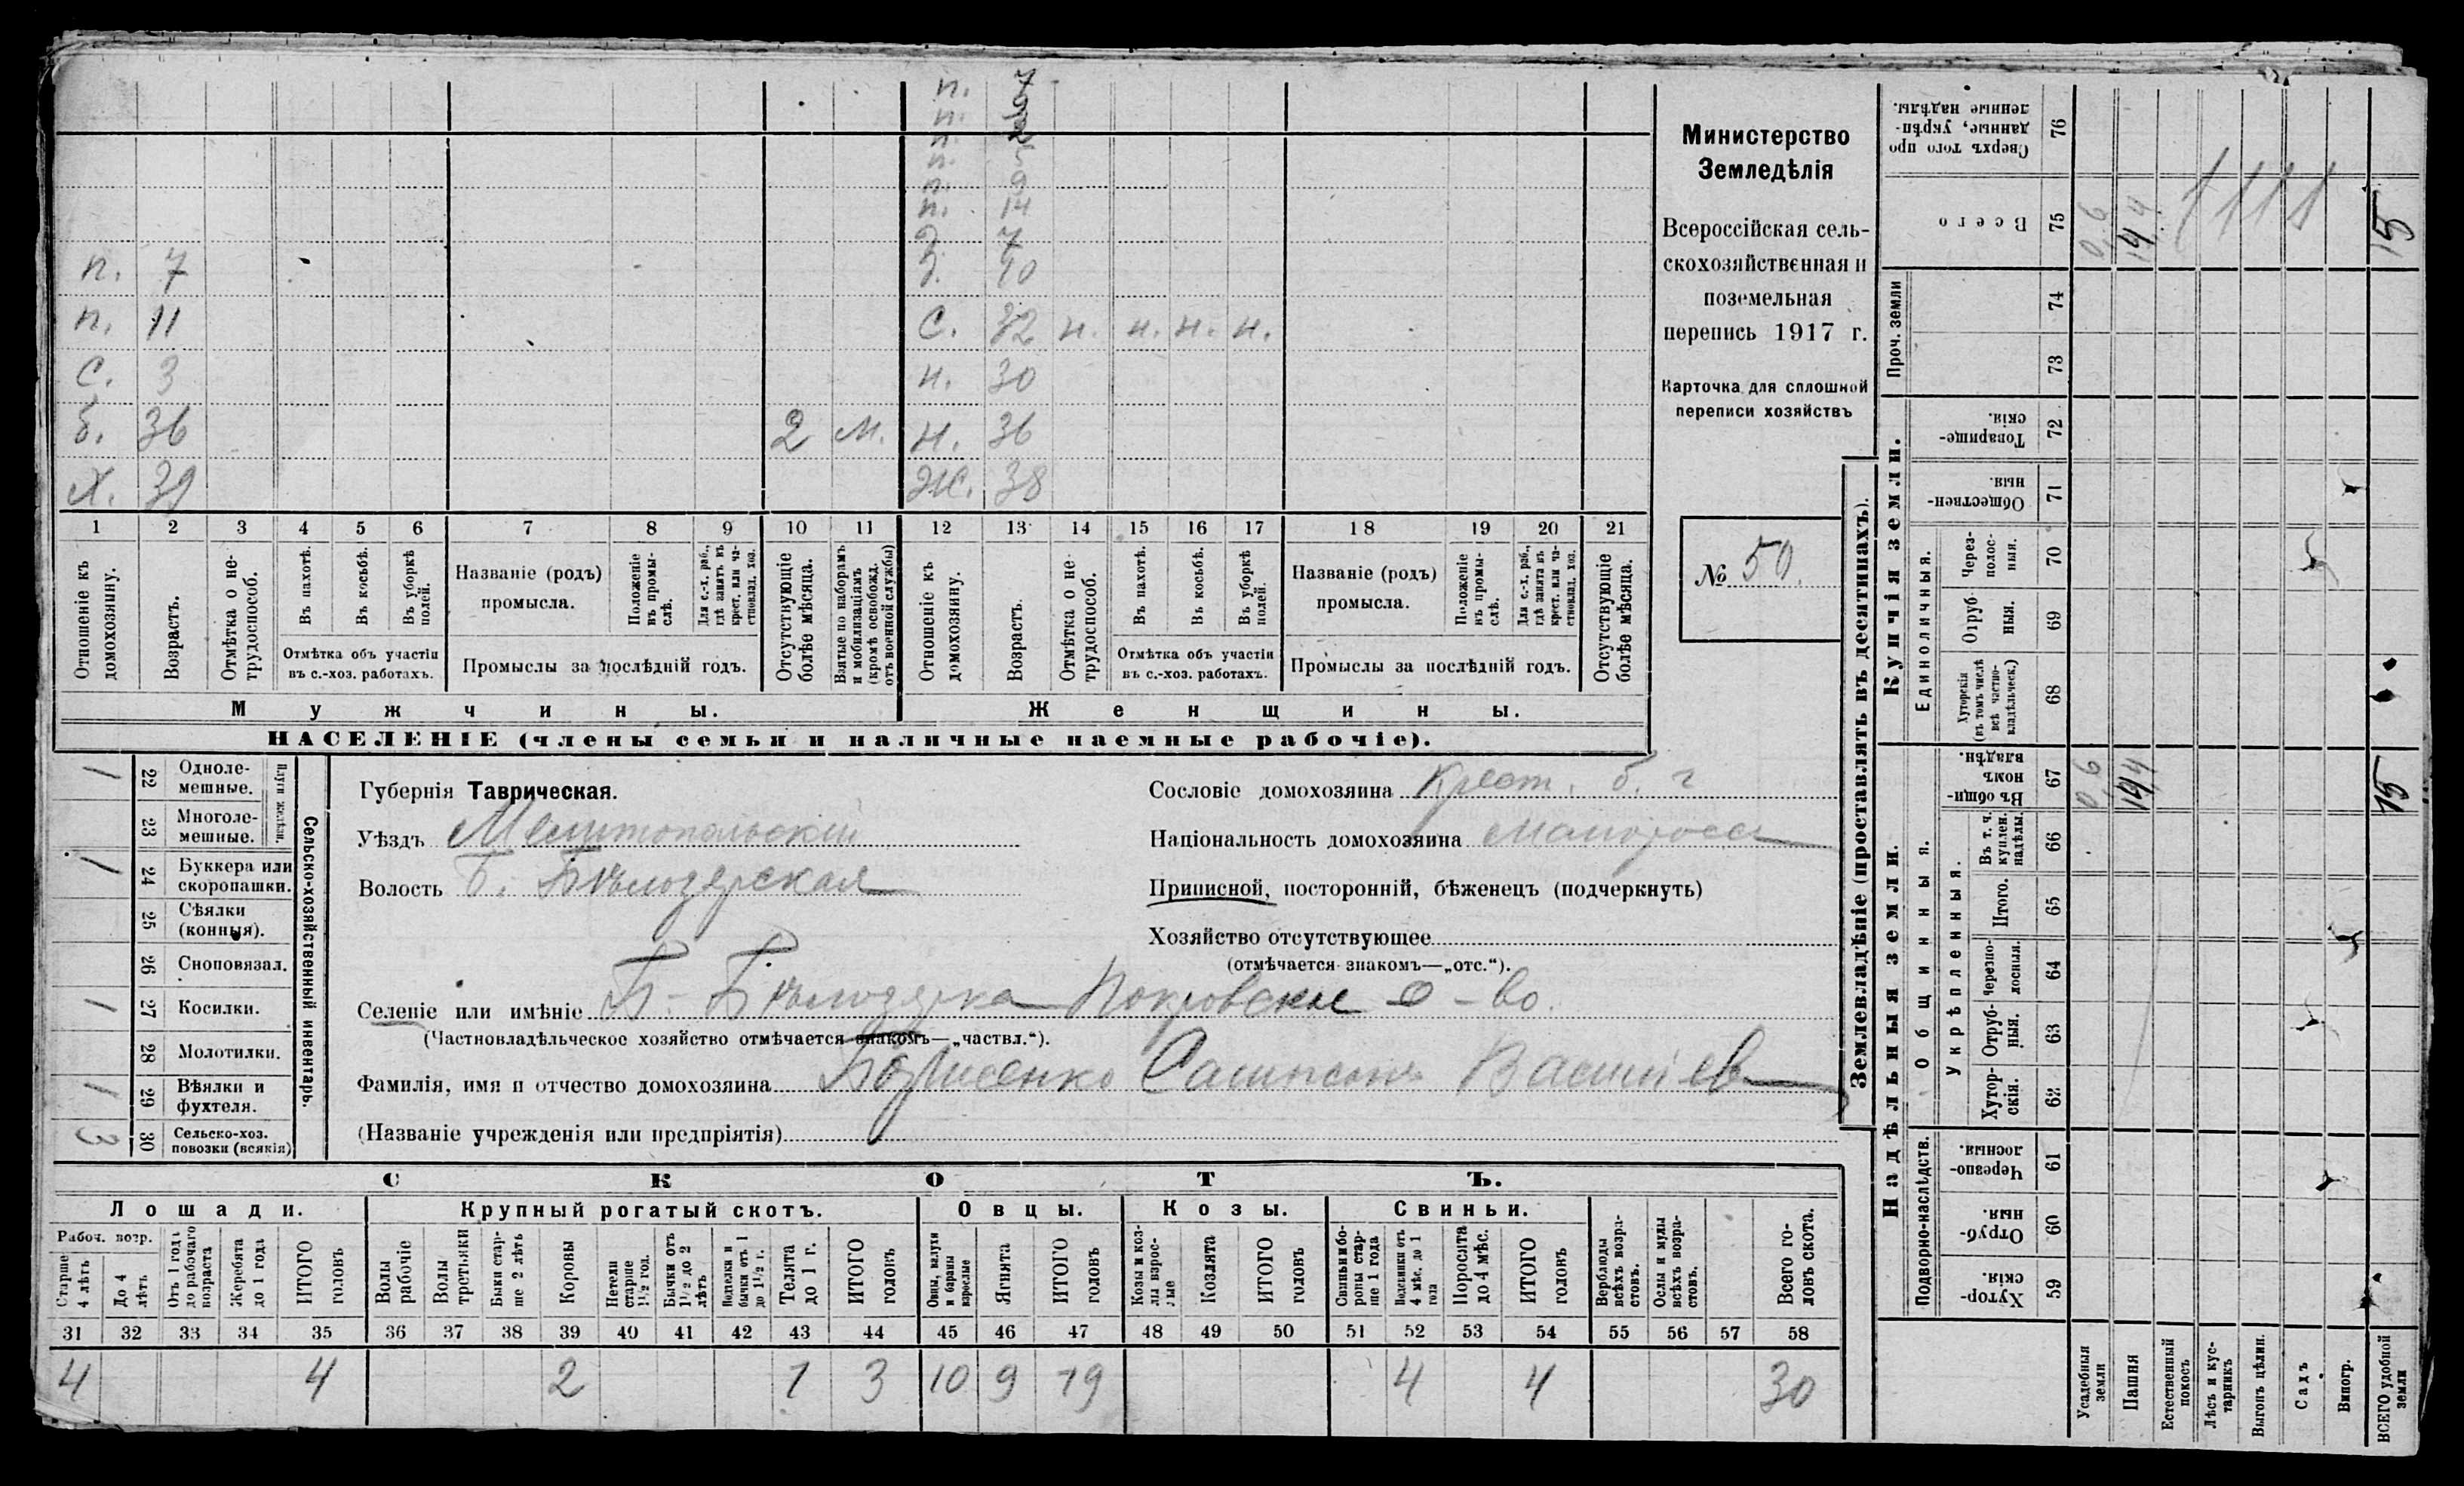 п. 7
п.
п.
п. 5
п. 9
п. 14
д. 7
п. 7 д. 10
п. 11 с. 32 н. н. н. н.
с. 3 н. 30
б. 36 2 м. н. 36
х. 39 ж. 38
1 2 3 4 5 6 7 8 9 10 11 12 13 14 15 16 17 18 19 20 21
Отношеніе къ домохозяину.
Возрастъ.
Отмѣтка о нетрудоспособ.
Въ пахотѣ.
Въ косьбѣ.
Въ уборкѣ полей.
Отмѣтка объ участіи въ с.-хоз. работахъ.
Названіе (родъ) промысла.
Положеніе въ промыслѣ.
Для с.-х. раб., гдѣ занятъ въ крест. или частновлад. хоз.
Промыслы за послѣдній годъ.
Отсутствующіе болѣе мѣсяца.
Взятые по наборамъ и мобилизаціямъ (кромѣ освобожд. отъ военной службы)
Отношеніе къ домохозяину.
Возрастъ.
Отмѣтка о нетрудоспособ.
Въ пахотѣ.
Въ косьбѣ.
Въ уборкѣ полей.
Отмѣтка объ участіи въ с.-хоз. работахъ.
Названіе (родъ) промысла.
Положеніе въ промыслѣ.
Для с.-х. раб., гдѣ занята въ крест. или частновлад. хоз.
Промыслы за послѣдній годъ.
Отсутствующіе болѣе мѣсяца.
Мужчины. Женщины.
НАСЕЛЕНІЕ (члены семьи и наличные наемные рабочіе).
Министерство
Земледѣлія
Всероссійская сель-
скохозяйственная и
поземельная
перепись 1917 г.
Карточка для сплошной
переписи хозяйствъ
№ 50.
Сельско-хозяйственный инвентарь.
Плуги желѣзн.
1 22 Одноле-
мешные.
23 Многоле-
мешные.
1 24 Буккера или
скоропашки.
25 Сѣялки
(конныя).
26 Сноповязал.
1 27 Косилки.
28 Молотилки.
1 29 Вѣялки и
фухтеля.
3 30 Сельско-хоз.
повозки (всякія)
Губернія Таврическая.
Уѣздъ Мелитопольскій
Волость Б. Бѣлозерская
Сословіе домохозяина крест. б. г
Національность домохозяина малоросс
Приписной, посторонній, бѣженецъ (подчеркнуть)
Хозяйство отсутствующее
(отмѣчается знакомъ—„отс.“).
Селеніе или имѣніе Б-Бѣлозерка Покровское о-во.
(Частновладѣльческое хозяйство отмѣчается знакомъ—„частвл.“).
Фамилія, имя и отчество домохозяина Борисенко Сампсонъ Василіев
(Названіе учрежденія или предпріятія)
СКОТЪ.
Лошади. Крупный рогатый скотъ. Овцы. Козы. Свиньи.
Рабоч. возр.
Старше 4 лѣтъ
До 4 лѣтъ
Отъ 1 года до рабочаго возраста
Жеребята до 1 года
ИТОГО головъ
Волы рабочіе
Волы третьяки
Быки старше 2 лѣтъ
Коровы
Нетели старше 1½ год.
Бычки отъ 1½ до 2 лѣтъ
Подтелки и бычки отъ 1 до 1½ г.
Телята до 1 г.
ИТОГО головъ
Овцы, валухи и бараны взрослые
Ягнята
ИТОГО головъ
Козы и козлы взрослые
Козлята
ИТОГО головъ
Свиньи и боровы старше 1 года
Подсвинки отъ 4 мѣс. до 1 года
Поросята до 4 мѣс.
ИТОГО головъ
Верблюды всѣхъ возрастовъ.
Ослы и мулы всѣхъ возрастовъ.
Всего головъ скота.
31 32 33 34 35 36 37 38 39 40 41 42 43 44 45 46 47 48 49 50 51 52 53 54 55 56 57 58
4 4 2 1 3 10 9 19 4 4 30
Землевладѣніе (проставлять въ десятинахъ).
Надѣльныя земли. Купчія земли.
Проч. земли
Подворно-наслѣдств.
Общинныя.
Укрѣпленныя.
Единоличныя.
Сверхъ того проданные, укрѣпленные надѣлы. 76
Всего 75 0,6 14,4 15
74
73
Товарищескія. 72
Общественныя. 71
Черезполосныя. 70
Отрубныя. 69
Хуторскія (въ томъ числѣ всѣ частновладѣльческ.) 68
Въ общинномъ владѣн. 67 0,6 14,4 15
Въ т. ч. куплен. надѣлы. 66
Итого. 65
Черезполосныя. 64
Отрубныя. 63
Хуторскія. 62
Черезполосныя. 61
Отрубныя. 60
Хуторскія. 59
Усадебныя земли
Пашня
Естественный покосъ
Лѣсъ и кустарникъ
Выгонъ цѣлин.
Садъ
Виногр.
ВСЕГО удобной земли